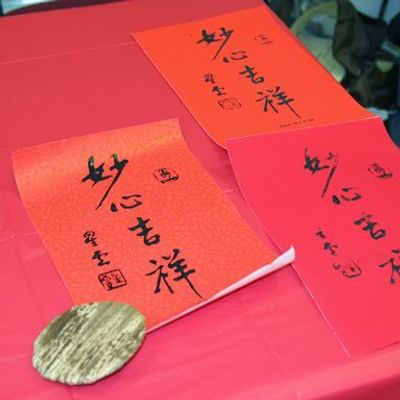 妙心吉祥
星云
妙心吉祥
星云
妙心吉祥
星云